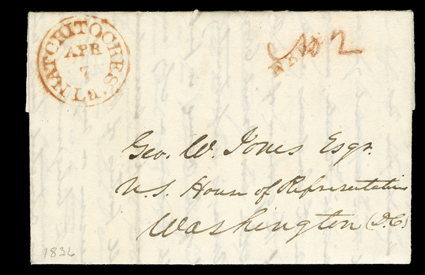 NATCHITOCHES
APR
7
La.
2
Geo. W. Jones Esqr.
U.S. House of Representatives
Washington (D.C)
1836